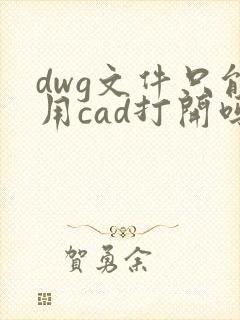 dwg文件只能
用cad打开吗
賀勇余